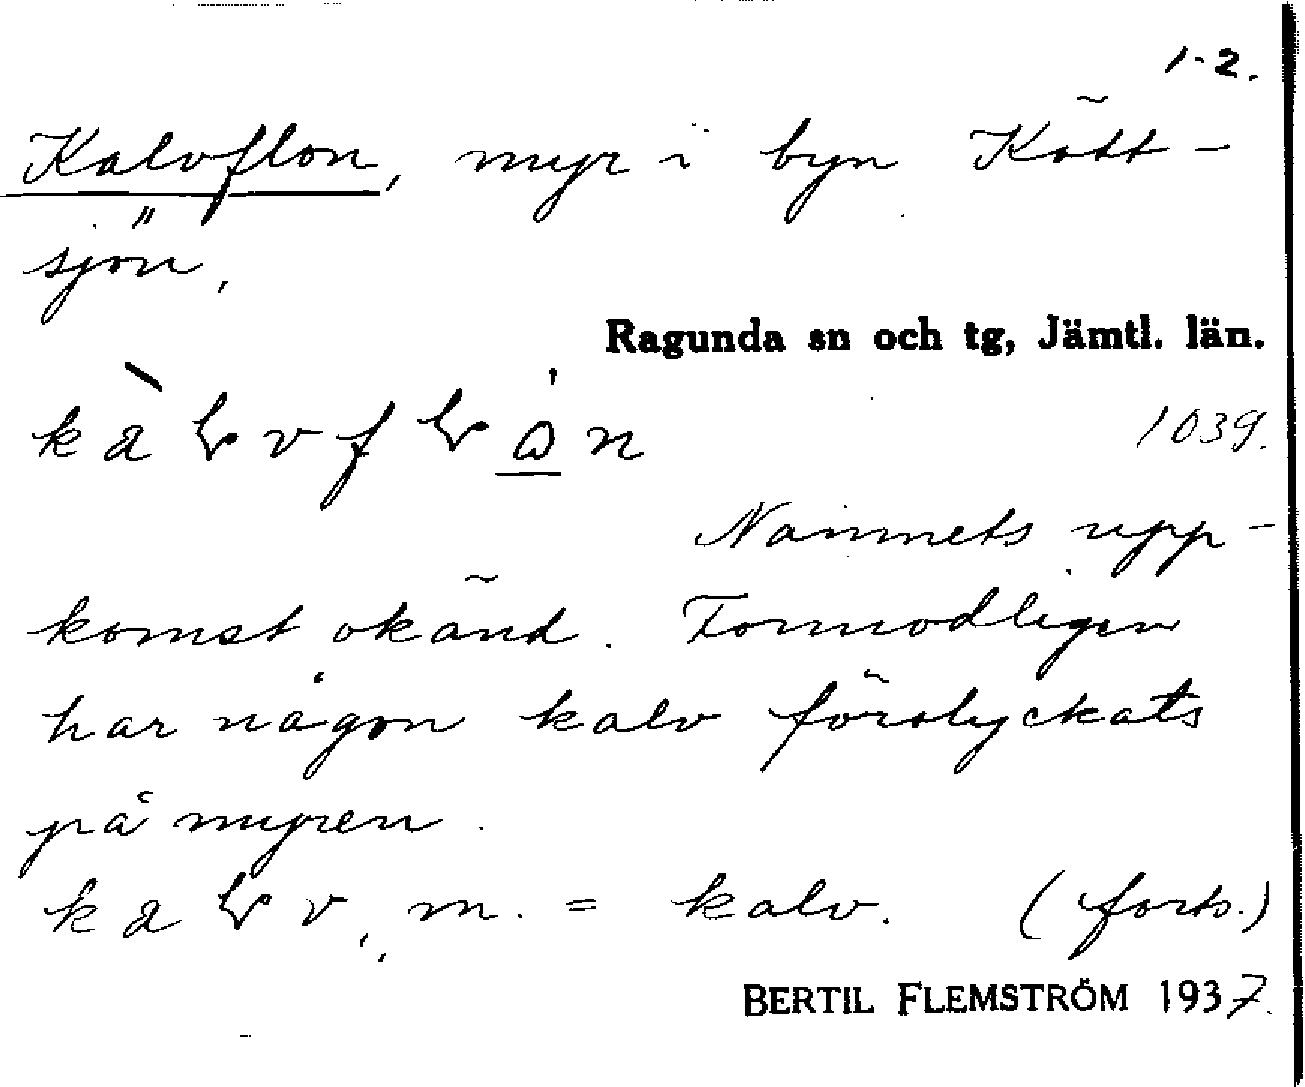 1-2.
Kalvflon, myr i byn Kött-
sjön,
Ragunda sn och tg, Jämtl. län.
1039.
Namnets upp-
komst okänd. Formodligen
har någon kalv förolyckats
på myren.
m. = kalv. (forts.)
BERTIL FLEMSTRÖM 1937.